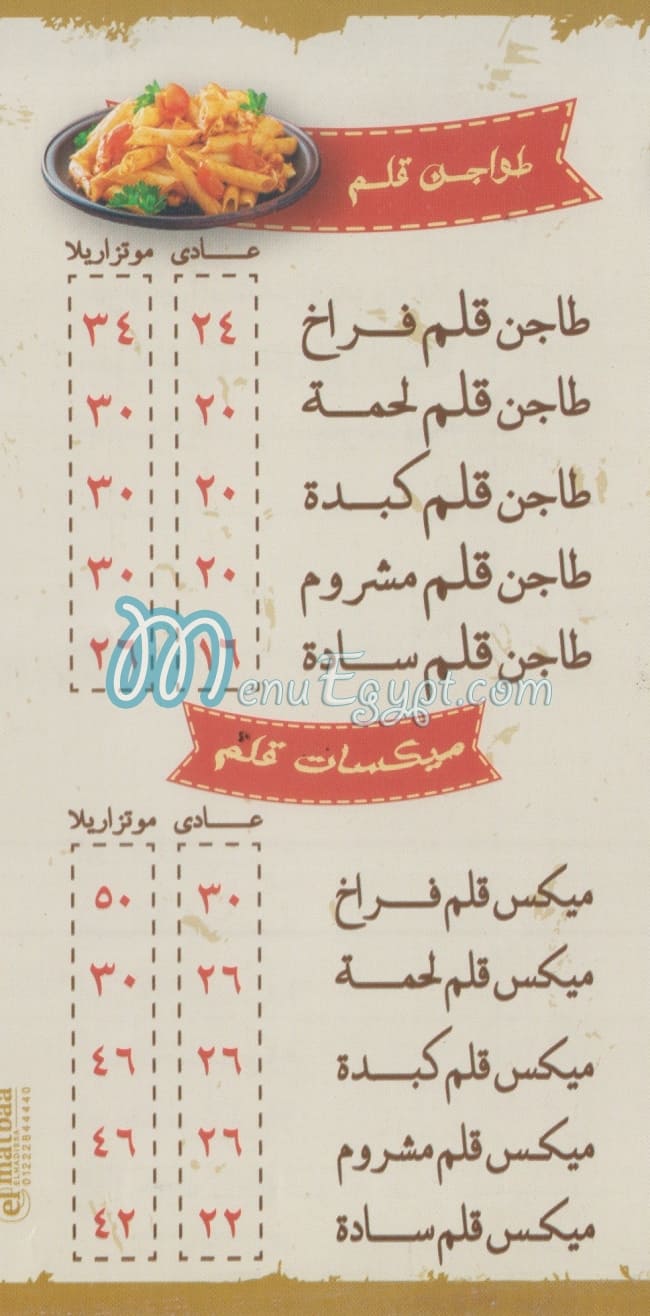 طواجن قلم
عادى موتزاريلا
طاجن قلم فراخ ٢٤ ٣٤
طاجن قلم لحمة ٢٠ ٣٠
طاجن قلم كبدة ٢٠ ٣٠
طاجن قلم مشروم ٢٠ ٣٠
طاجن قلم سادة ١٦ ٢٦
MenuEgypt.com
ميكسات قلم
عادى موتزاريلا
ميكس قلم فراخ ٣٠ ٥٠
ميكس قلم لحمة ٢٦ ٣٠
ميكس قلم كبدة ٢٦ ٤٦
ميكس قلم مشروم ٢٦ ٤٦
ميكس قلم سادة ٢٢ ٤٢
el matbaa
01222844440